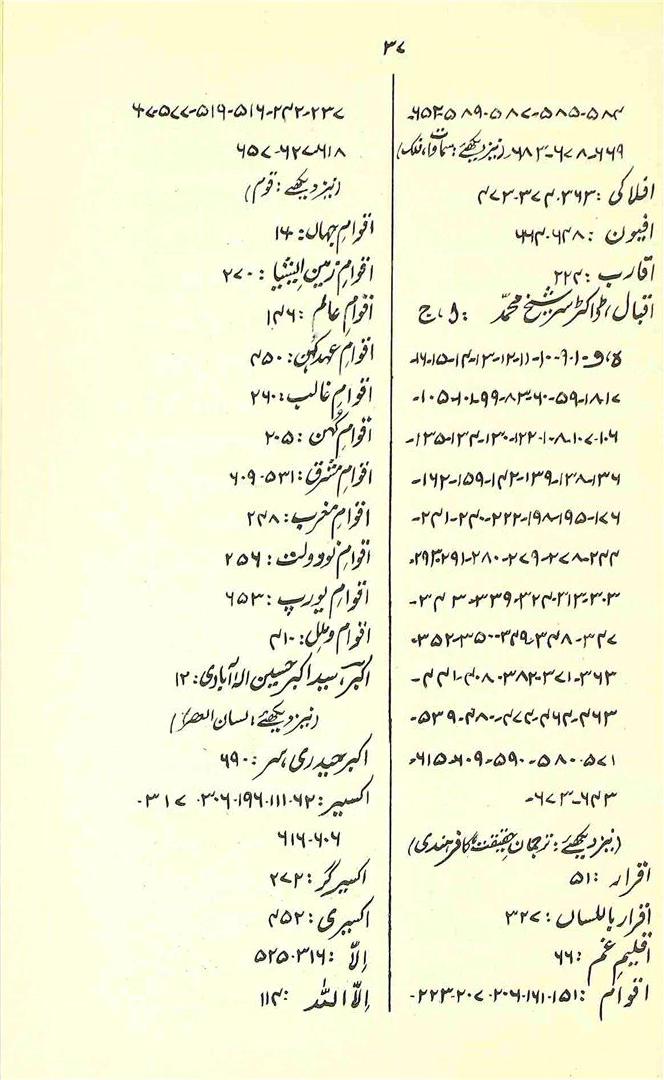 ۳۷
۵۸۴-۵۸۵-۵۸۷-۵۸۹-۶۵۲-
۶۶۹-۶۷۸-۶۸۳- (نیز دیکھئے: سماوات، فلک)
افلاکی: ۳۶۳-۳۷۴-۴۷۳
افیون: ۶۴۸-۶۶۴
اقارب: ۲۲۴
اقبال، ڈاکٹر سر شیخ محمدؒ: ا، ج
ہ، و، ۹-۱۰-۱۱-۱۲-۱۳-۱۴-۱۵-۱۶-
۱۷-۱۸-۵۹-۶۰-۸۳-۹۹-۱۰۲-۱۰۵-
۱۰۶-۱۰۷-۱۰۸-۱۲۲-۱۳۰-۱۳۴-۱۳۵-
۱۳۶-۱۳۸-۱۳۹-۱۴۲-۱۵۹-۱۶۲-
۱۷۶-۱۹۵-۱۹۸-۲۲۲-۲۴۰-۲۴۱-
۲۴۴-۲۷۸-۲۷۹-۲۸۰-۲۹۱-۲۹۳-
۳۰۳-۳۱۳-۳۲۴-۳۳۹-۳۴۳-
۳۴۷-۳۴۸-۳۴۹-۳۵۰-۳۵۲-
۳۶۳-۳۷۱-۳۸۲-۴۰۸-۴۴۱-
۴۶۳-۴۶۴-۴۷۴-۴۸۰-۵۳۹-
۵۷۱-۵۸۰-۵۹۰-۶۰۹-۶۱۵-
۶۴۳-۶۷۳-
(نیز دیکھئے: ترجمان حقیقت، کافر ہندی)
اقرار: ۵۱
اقرار باللسان: ۳۲۷
اقلیمِ غم: ۶۶
اقوام: ۱۵۱-۱۶۱-۲۰۶-۲۰۷-۲۲۳-
۲۳۷-۲۴۲-۵۱۶-۵۱۹-۵۷۷-۶۰۷
۶۱۸-۶۲۷-۶۵۷
(نیز دیکھئے: قوم)
اقوامِ جہاں: ۱۶۰
اقوامِ زمینِ ایشیا: ۲۷۰
اقوامِ عالم: ۱۴۶
اقوامِ عہدِ کہن: ۴۵۰
اقوامِ غالب: ۲۶۰
اقوامِ کُہن: ۲۰۵
اقوامِ مشرق: ۵۳۱-۶۰۹
اقوامِ مغرب: ۲۴۸
اقوامِ نو دولت: ۲۵۶
اقوامِ یورپ: ۶۵۳
اقوام و ملل: ۴۱۰
اکبر، سید اکبر حسین الہ آبادی: ۱۲
(نیز دیکھئے: لسان العصر)
اکبر حیدری، سر: ۶۹۰
اکسیر: ۶۲-۱۱۱-۱۹۶-۳۰۶-۳۱۷-
۶۰۶-۶۱۶
اکسیر گر: ۲۷۲
اکسیری: ۴۵۲
اِلّا: ۳۱۶-۵۲۵
اِلّا اللہ: ۱۱۴